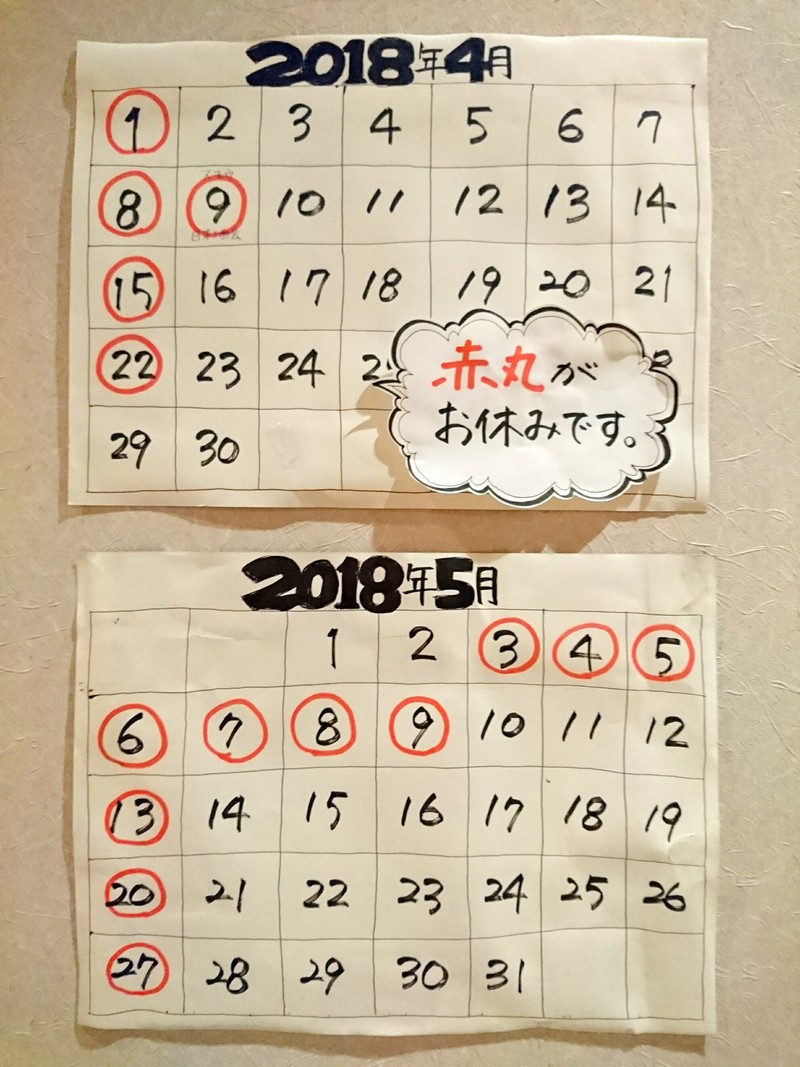 2018年4月
1 2 3 4 5 6 7
8 9 10 11 12 13 14
15 16 17 18 19 20 21
22 23 24
赤丸が
お休みです。
29 30
2018年5月
1 2 3 4 5
6 7 8 9 10 11 12
13 14 15 16 17 18 19
20 21 22 23 24 25 26
27 28 29 30 31